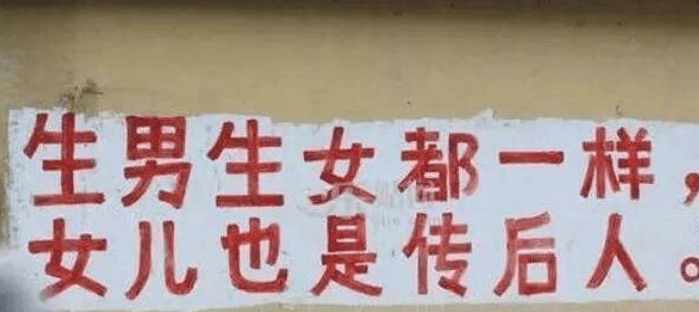 生男生女都一样,
女儿也是传后人。